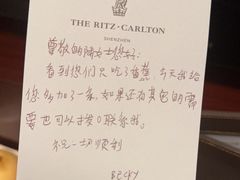 THE RITZ-CARLTON
SHENZHEN
尊敬的陆女士您好:
看到您们只吃了香蕉,今天我给
您多加了一条,如果还有其它的需
要也可以按0联系我。
祝一切顺利
BECKY